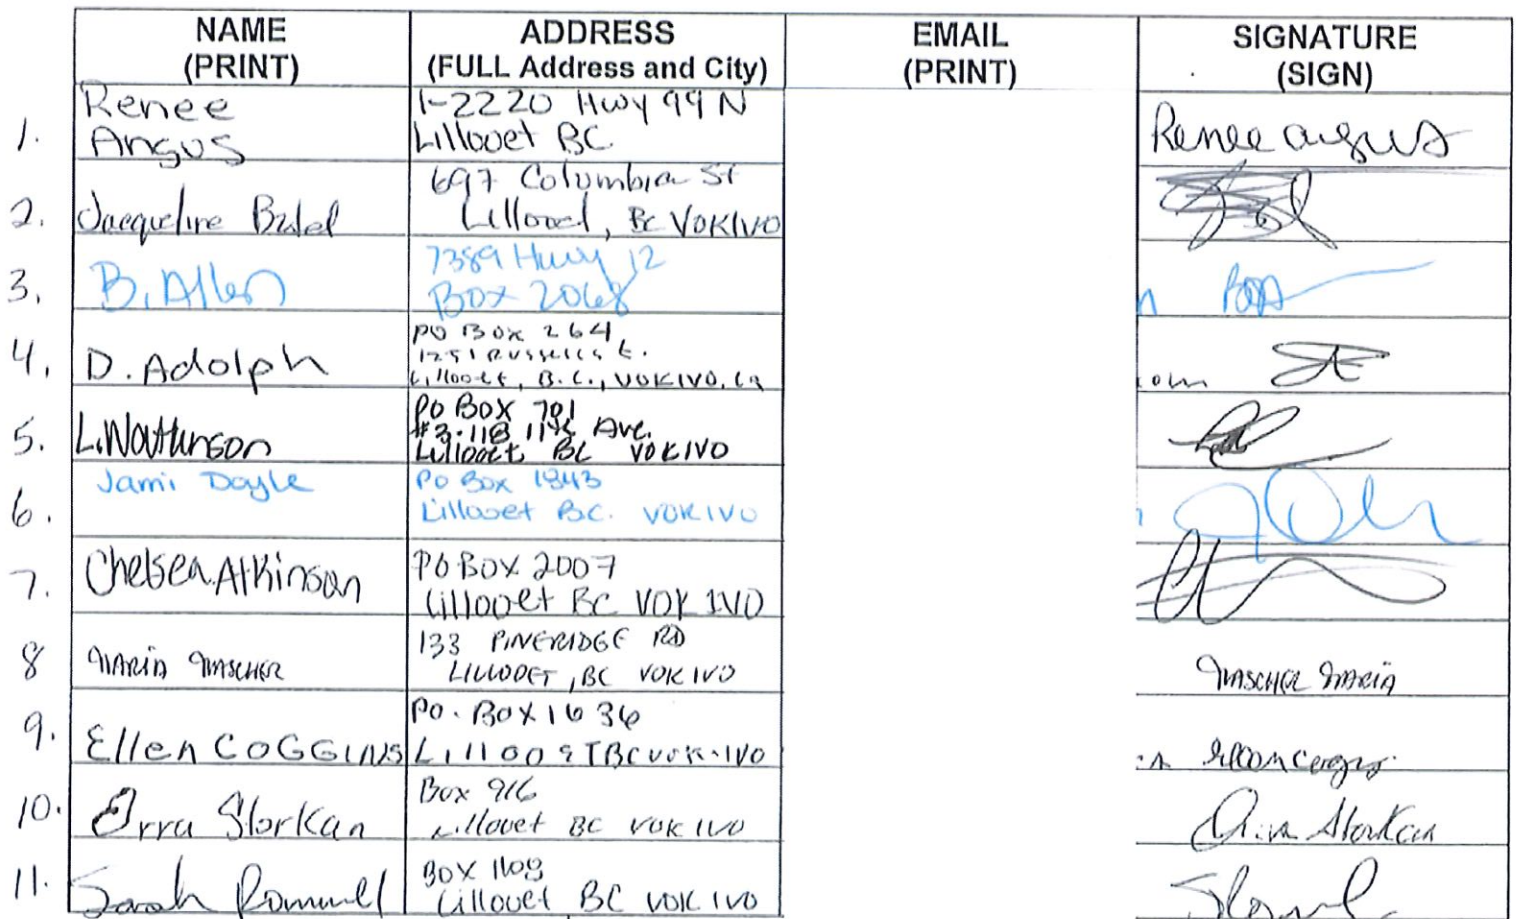 NAME (PRINT) ADDRESS (FULL Address and City) EMAIL (PRINT) SIGNATURE (SIGN)
1. Renee Angus 1-2220 Hwy 99 N Lillooet BC Renee angus
2. Jacqueline 697 Columbia St Lillooet, BC V0K1V0
3. B. Allen 7389 Hwy 12 Box 2068
4. D. Adolph PO Box 264 1251 Russell St. Lillooet, B.C., V0K1V0 om
5. L. Watkinson PO Box 701 #3-118 11th Ave. Lillooet BC V0K1V0
6. Jami Doyle PO Box 1843 Lillooet BC. V0K1V0
7. Chelsea Atkinson PO Box 2007 Lillooet BC V0K 1V0
8 Maria Mascher 133 PINERIDGE RD LILLOOET, BC V0K1V0 Mascher Maria
9. Ellen COGGINS PO. Box 1636 LillooeT BC V0K-1V0
10. Storkan Box 916 Lillooet BC V0K 1V0 Storkan
11. Sarah Rommel Box 1108 Lillooet BC V0K 1V0